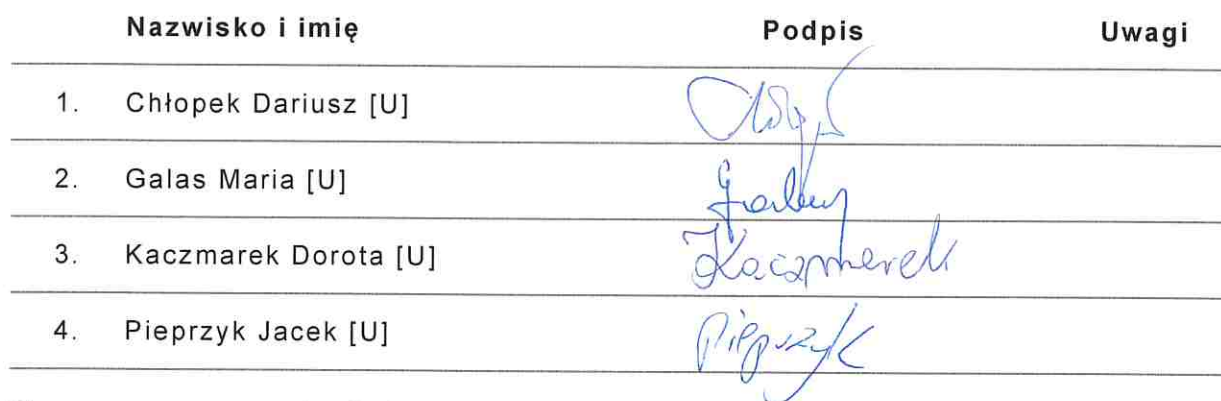 Nazwisko i imię Podpis Uwagi
1. Chłopek Dariusz [U]
2. Galas Maria [U]
3. Kaczmarek Dorota [U] Kaczmarek
4. Pieprzyk Jacek [U] Pieprzyk